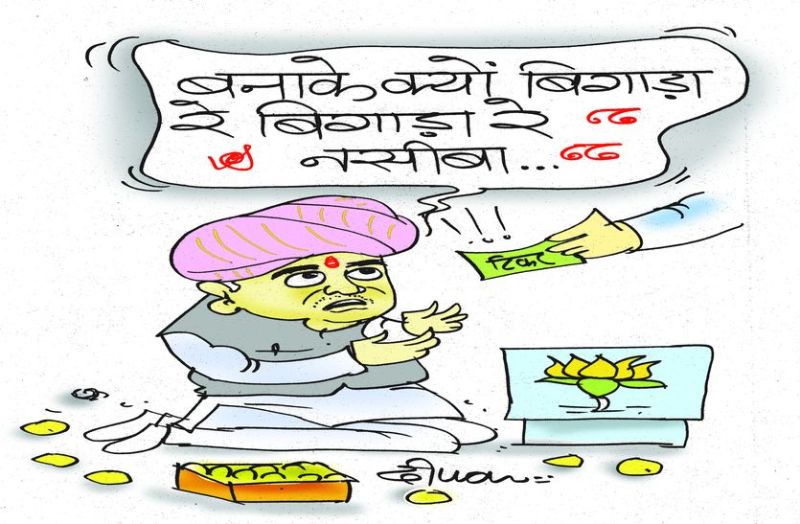 बनाके क्यों बिगाड़ा
रे बिगाड़ा रे
नसीबा...
!!!
टिकट
दीपक